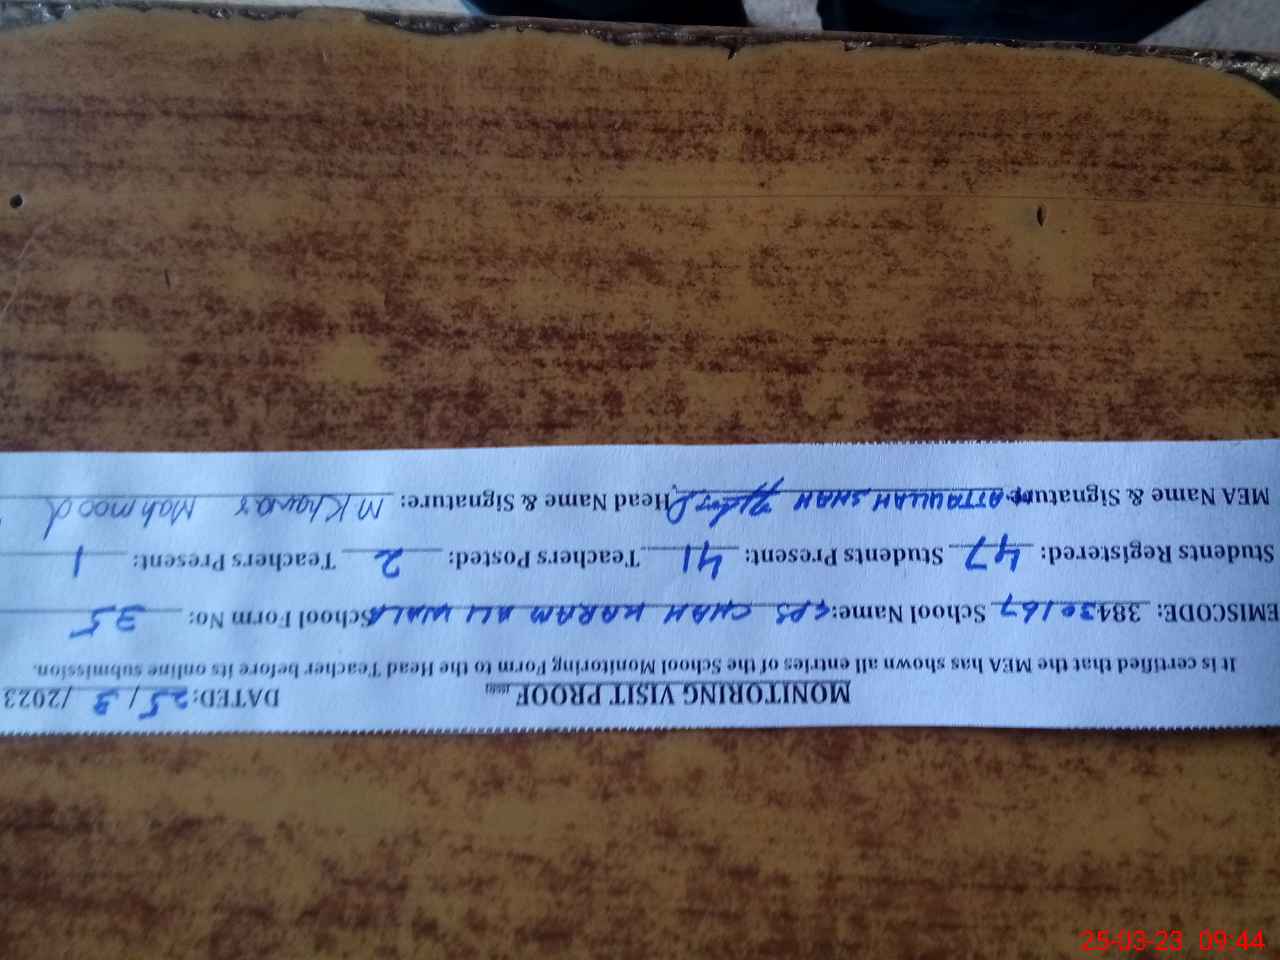 MONITORING VISIT PROOF DATED: 25 / 3 /2023
It is certified that the MEA has shown all entries of the School Monitoring Form to the Head Teacher before its online submission.
EMISCODE: 38430167 School Name: GPS CHAH KARAM ALI WALA School Form No: 35
Students Registered: 47 Students Present: 41 Teachers Posted: 2 Teachers Present: 1
MEA Name & Signature: ATTAULLAH SHAH Head Name & Signature: M Khawar Mahmood
25-03-23 09:44